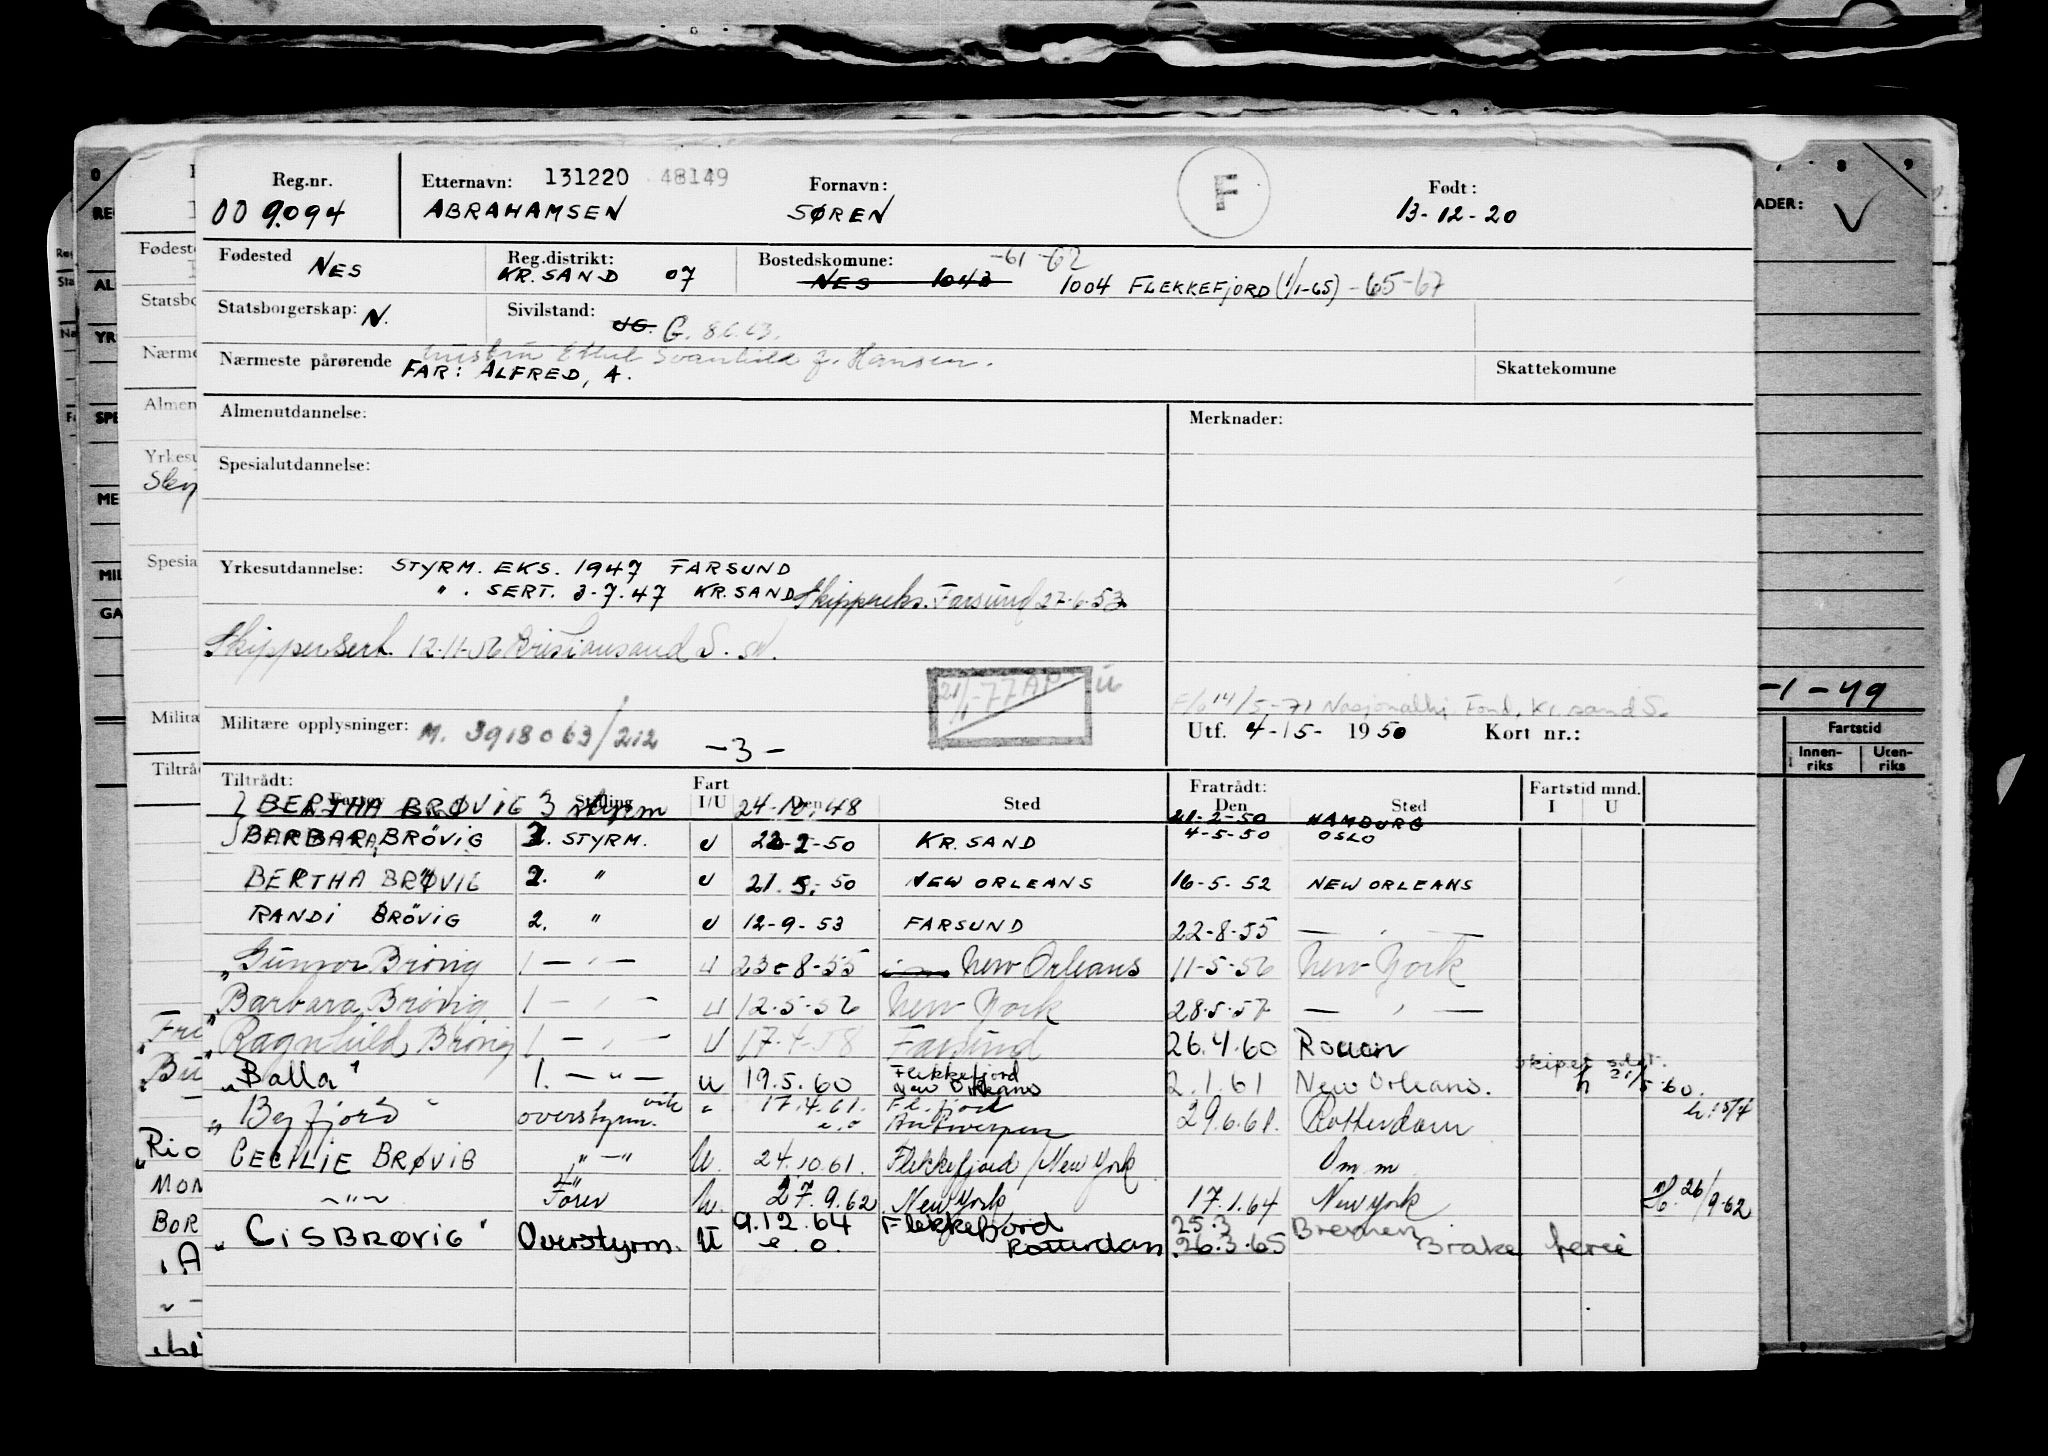 Reg.nr. Etternavn: 131220 48149 Fornavn: F Født:
00 9094 ABRAHAMSEN SØREN 13-12-20
Fødested NES Reg.distrikt: KR.SAND 07 Bostedskomune: -61-62
NES 1043 1004 FLEKKEFJORD (1/1-65) -65-67
Statsborgerskap: N. Sivilstand: UG. G.
Nærmeste pårørende Svanhild f. Hansen. Skattekomune
FAR: ALFRED, A.
Almenutdannelse: Merknader:
Spesialutdannelse:
Yrkesutdannelse: STYRM. EKS. 1947 FARSUND
" . SERT. 3-7-47 KR.SAND Skippereks. Farsund 27-6-53
Skippersert. 12-11-56 Kristiansand S.
21/1-77 AP u
14/5-71 Fond, Kr.sand S.
Militære opplysninger: M. 3918063/212 -3- Utf. 4-5- 1950 Kort nr.:
Tiltrådt: Fart Fratrådt: Fartstid mnd.
Stilling I/U Den Sted Den Sted I U
BERTHA BRØVIG 3 styrm 24-10-48 21-2-50 HAMBURG
BARBARA BRÖVIG 2. STYRM. U 22-2-50 KR.SAND 4-5-50 OSLO
BERTHA BRØVIG 2. " U 21.5.-50 NEW ORLEANS 16-5-52 NEW ORLEANS
RANDI BRÖVIG 2. " U 12-9-53 FARSUND 22-8-55 — " —
" Gunvor Brövig 1 — " — U 23-8-55 New Orleans 11-5-56 New York
Barbara Brövig 1 — " — U 12-5-56 New York 28-5-57 — " —
" Ragnhild Brövig 1 — " — U 17-4-58 Farsund 26.4.60 Rouen
"Balla" 1. — " — u 19.5.60 Flekkefjord New Orleans 2.1.61 New Orleans.
" Byfjord " overstyrm. vik " 17.4.61. Fl.fjord Antwerpen 29.6.61. Rotterdam
CECILIE BRØVIG " — " U. 24.10.61. Flekkefjord / New York Omm
— " — Fører U. 27.9.62 New York 17.1.64 New York 26/9-62
" CISBRØVIG " Overstyrm. U 9.12.64 Flekkefjord 25.3 Bremen
e.o. Rotterdam 26.3.65 Brake ferie
ADER:
-1-49
Fartstid
Innen-riks Uten-riks